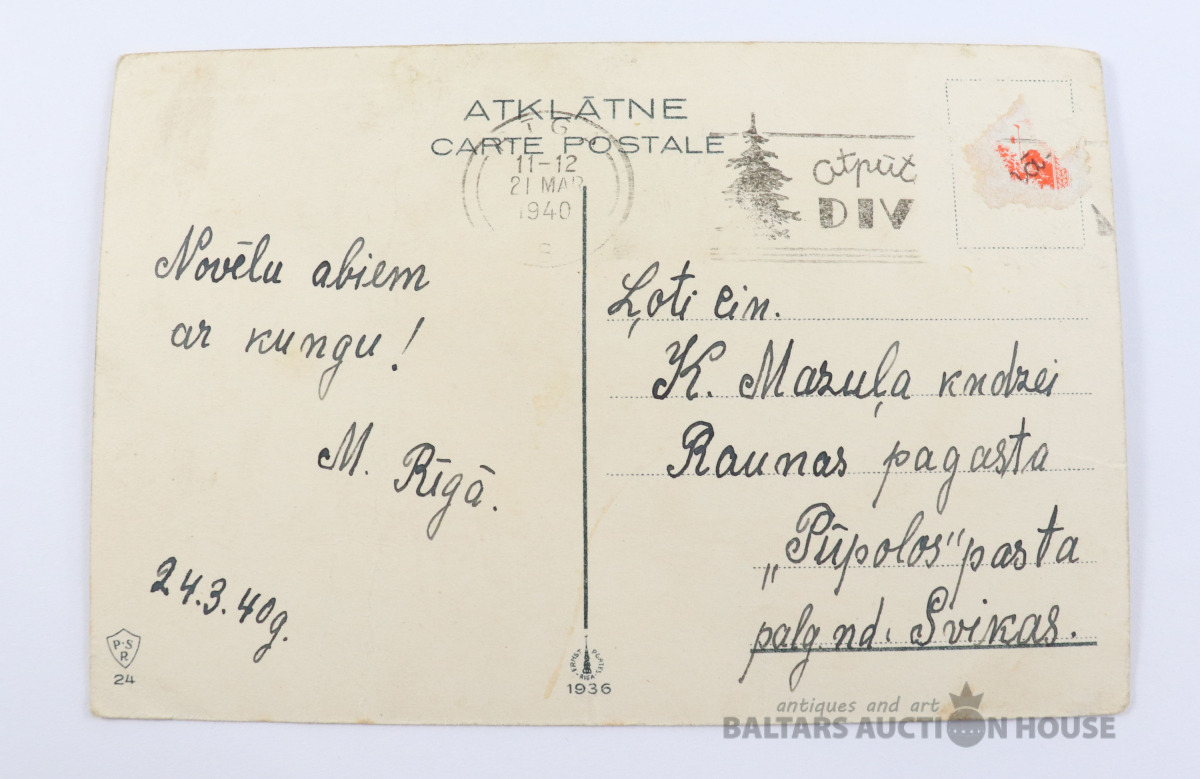 ATKLĀTNE
CARTE POSTALE
11-12
21 MAR
1940
atpūt
DIV
Novēlu abiem
ar kungu!
M. Rīgā.
24.3.40g.
P.S
R.
24
Ļoti cin.
K. Mazuļa kndzei
Raunas pagasta
„Pūpolos" pasta
palg.nd. Svikas.
RĪGA
1936
antiques and art
BALTARS AUCTION HOUSE